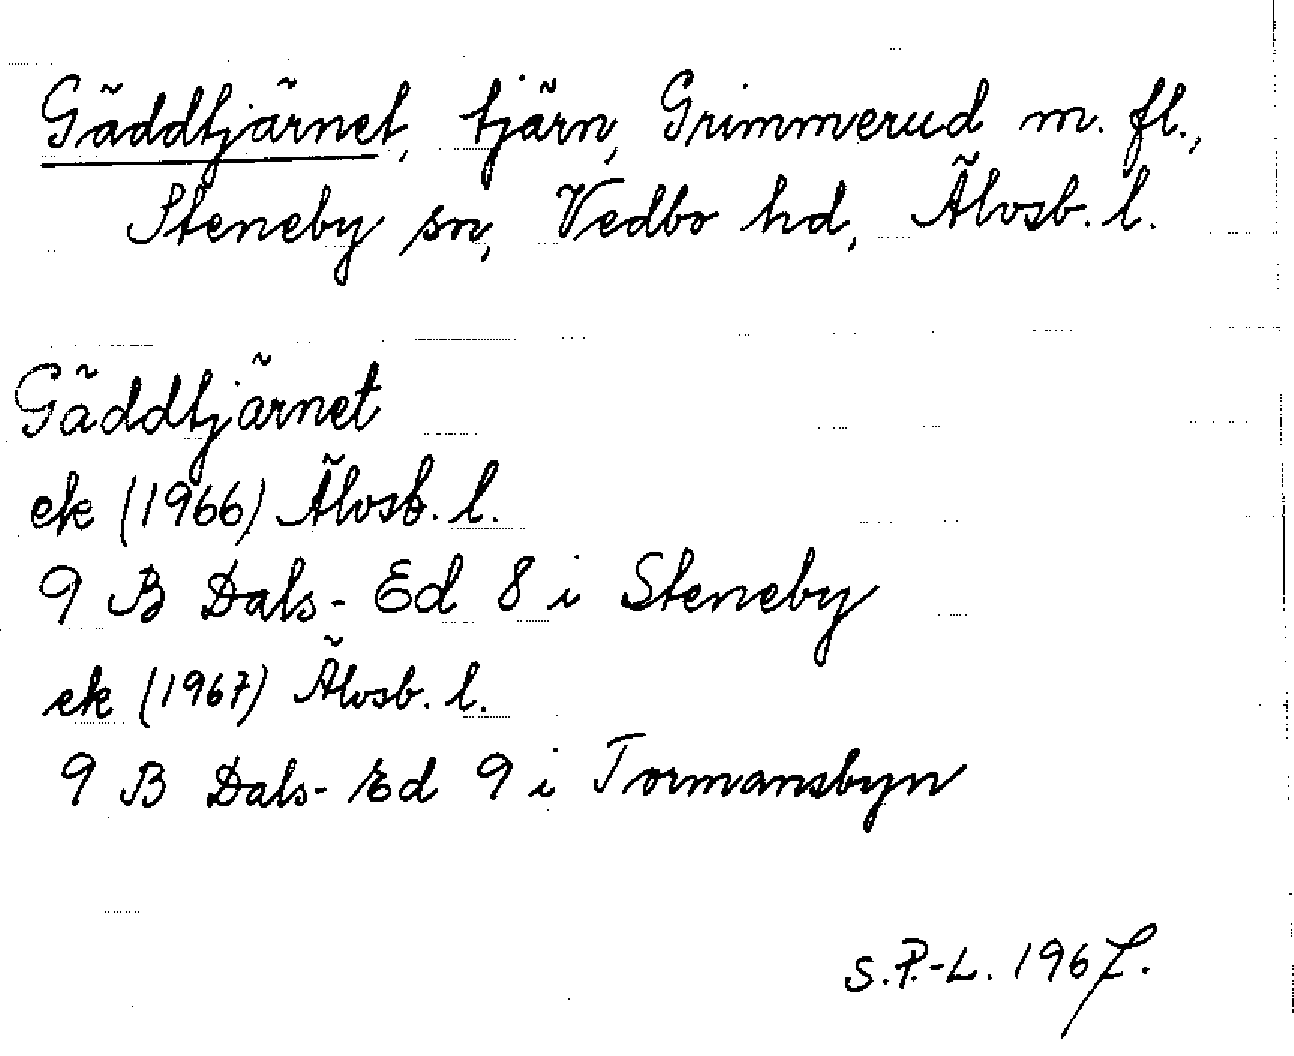 Gäddtjärnet, tjärn, Grimmerud m. fl.,
Steneby sn, Vedbo hd, Älvsb. l.
Gäddtjärnet
ek (1966) Älvsb. l.
9 B Dals-Ed 8 i Steneby
ek (1967) Älvsb. l.
9 B Dals-Ed 9 i Tormansbyn
S.P.-L. 1967.